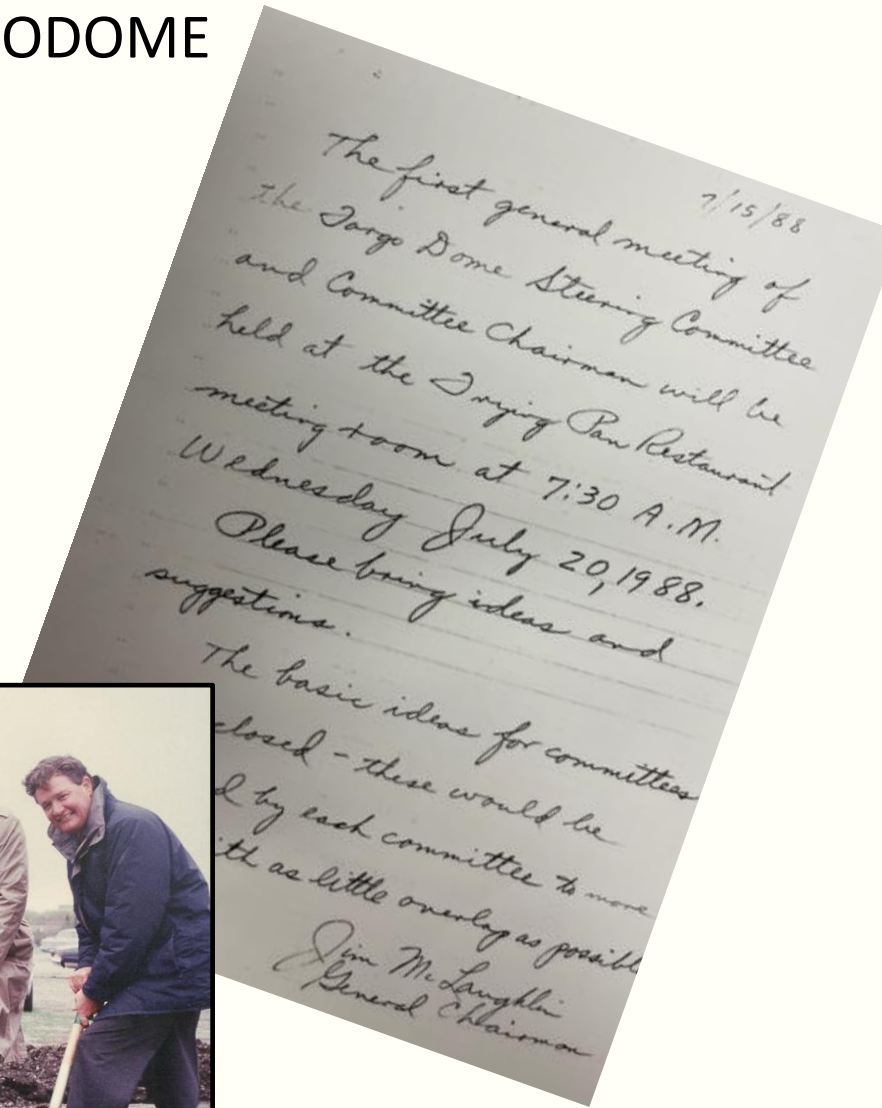 ODOME
7/15/88
The first general meeting of
the Fargo Dome Steering Committee
and Committee Chairman will be
held at the Frying Pan Restaurant
meeting room at 7:30 A.M.
Wednesday July 20, 1988.
Please bring ideas and
suggestions.
The basic ideas for committees
closed - these would be
d by each committee to more
ith as little overlap as possible
Jim McLaughlin
General Chairman